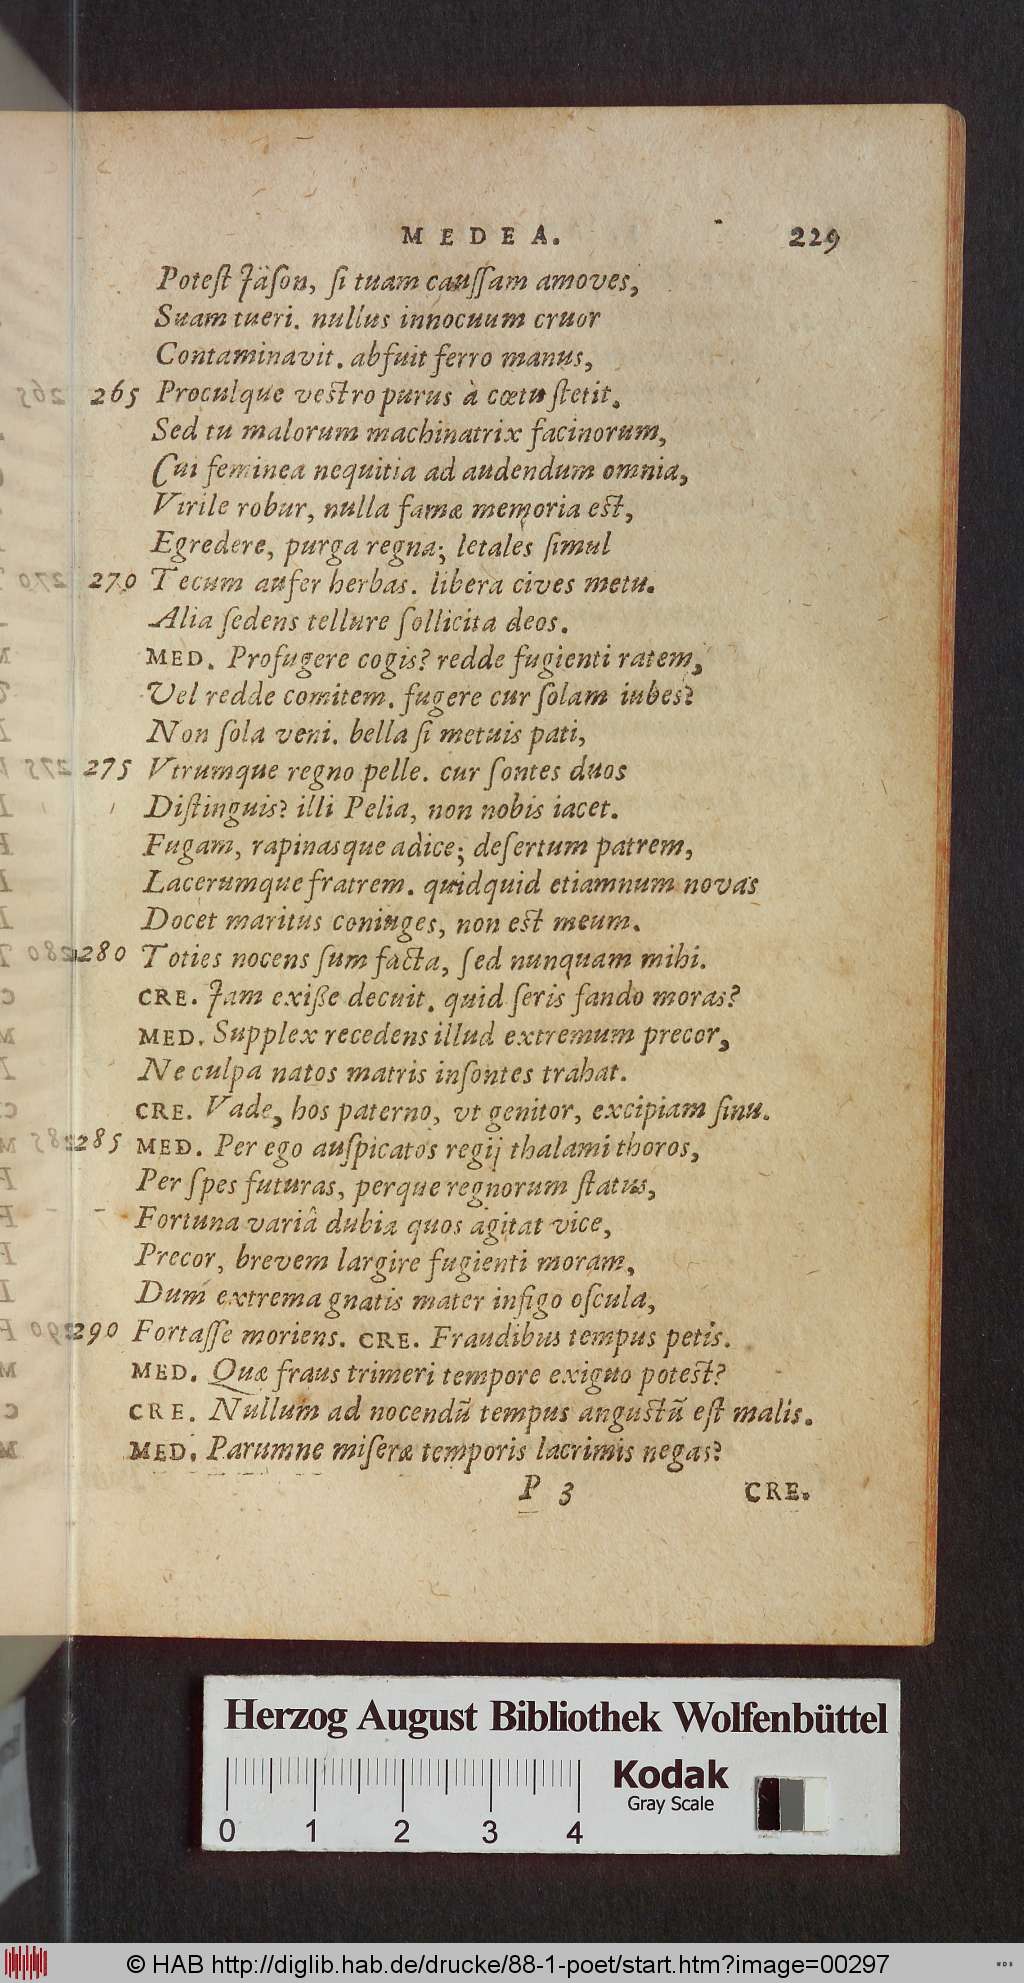 MEDEA. 229
Poteſt Jäſon, ſi tuam cauſſam amoves,
Suam tueri. nullus innocuum cruor
Contaminavit. abfuit ferro manus,
265 Proculque veſtro purus à cœtu ſtetit.
Sed tu malorum machinatrix facinorum,
Cui feminea nequitia ad audendum omnia,
Virile robur, nulla famæ memoria eſt,
Egredere, purga regna; letales ſimul
270 Tecum aufer herbas. libera cives metu.
Alia ſedens tellure ſollicita deos.
MED. Profugere cogis? redde fugienti ratem,
Vel redde comitem. fugere cur ſolam iubes?
Non ſola veni. bella ſi metuis pati,
275 Vtrumque regno pelle. cur ſontes duos
Diſtinguis? illi Pelia, non nobis iacet.
Fugam, rapinasque adice; deſertum patrem,
Lacerumque fratrem. quidquid etiamnum novas
Docet maritus coniuges, non eſt meum.
280 Toties nocens ſum facta, ſed nunquam mihi.
CRE. Jam exiße decuit. quid ſeris fando moras?
MED. Supplex recedens illud extremum precor,
Ne culpa natos matris inſontes trahat.
CRE. Vade, hos paterno, vt genitor, excipiam ſinu.
285 MED. Per ego auſpicatos regij thalami thoros,
Per ſpes futuras, perque regnorum ſtatus,
Fortuna variâ dubia quos agitat vice,
Precor, brevem largire fugienti moram,
Dum extrema gnatis mater infigo oſcula,
290 Fortaſſe moriens. CRE. Fraudibus tempus petis.
MED. Quæ fraus timeri tempore exiguo poteſt?
CRE. Nullum ad nocendū tempus anguſtū eſt malis.
MED. Parumne miſeræ temporis lacrimis negas?
P 3 CRE.
Herzog August Bibliothek Wolfenbüttel
Kodak
Gray Scale
0 1 2 3 4
© HAB http://diglib.hab.de/drucke/88-1-poet/start.htm?image=00297